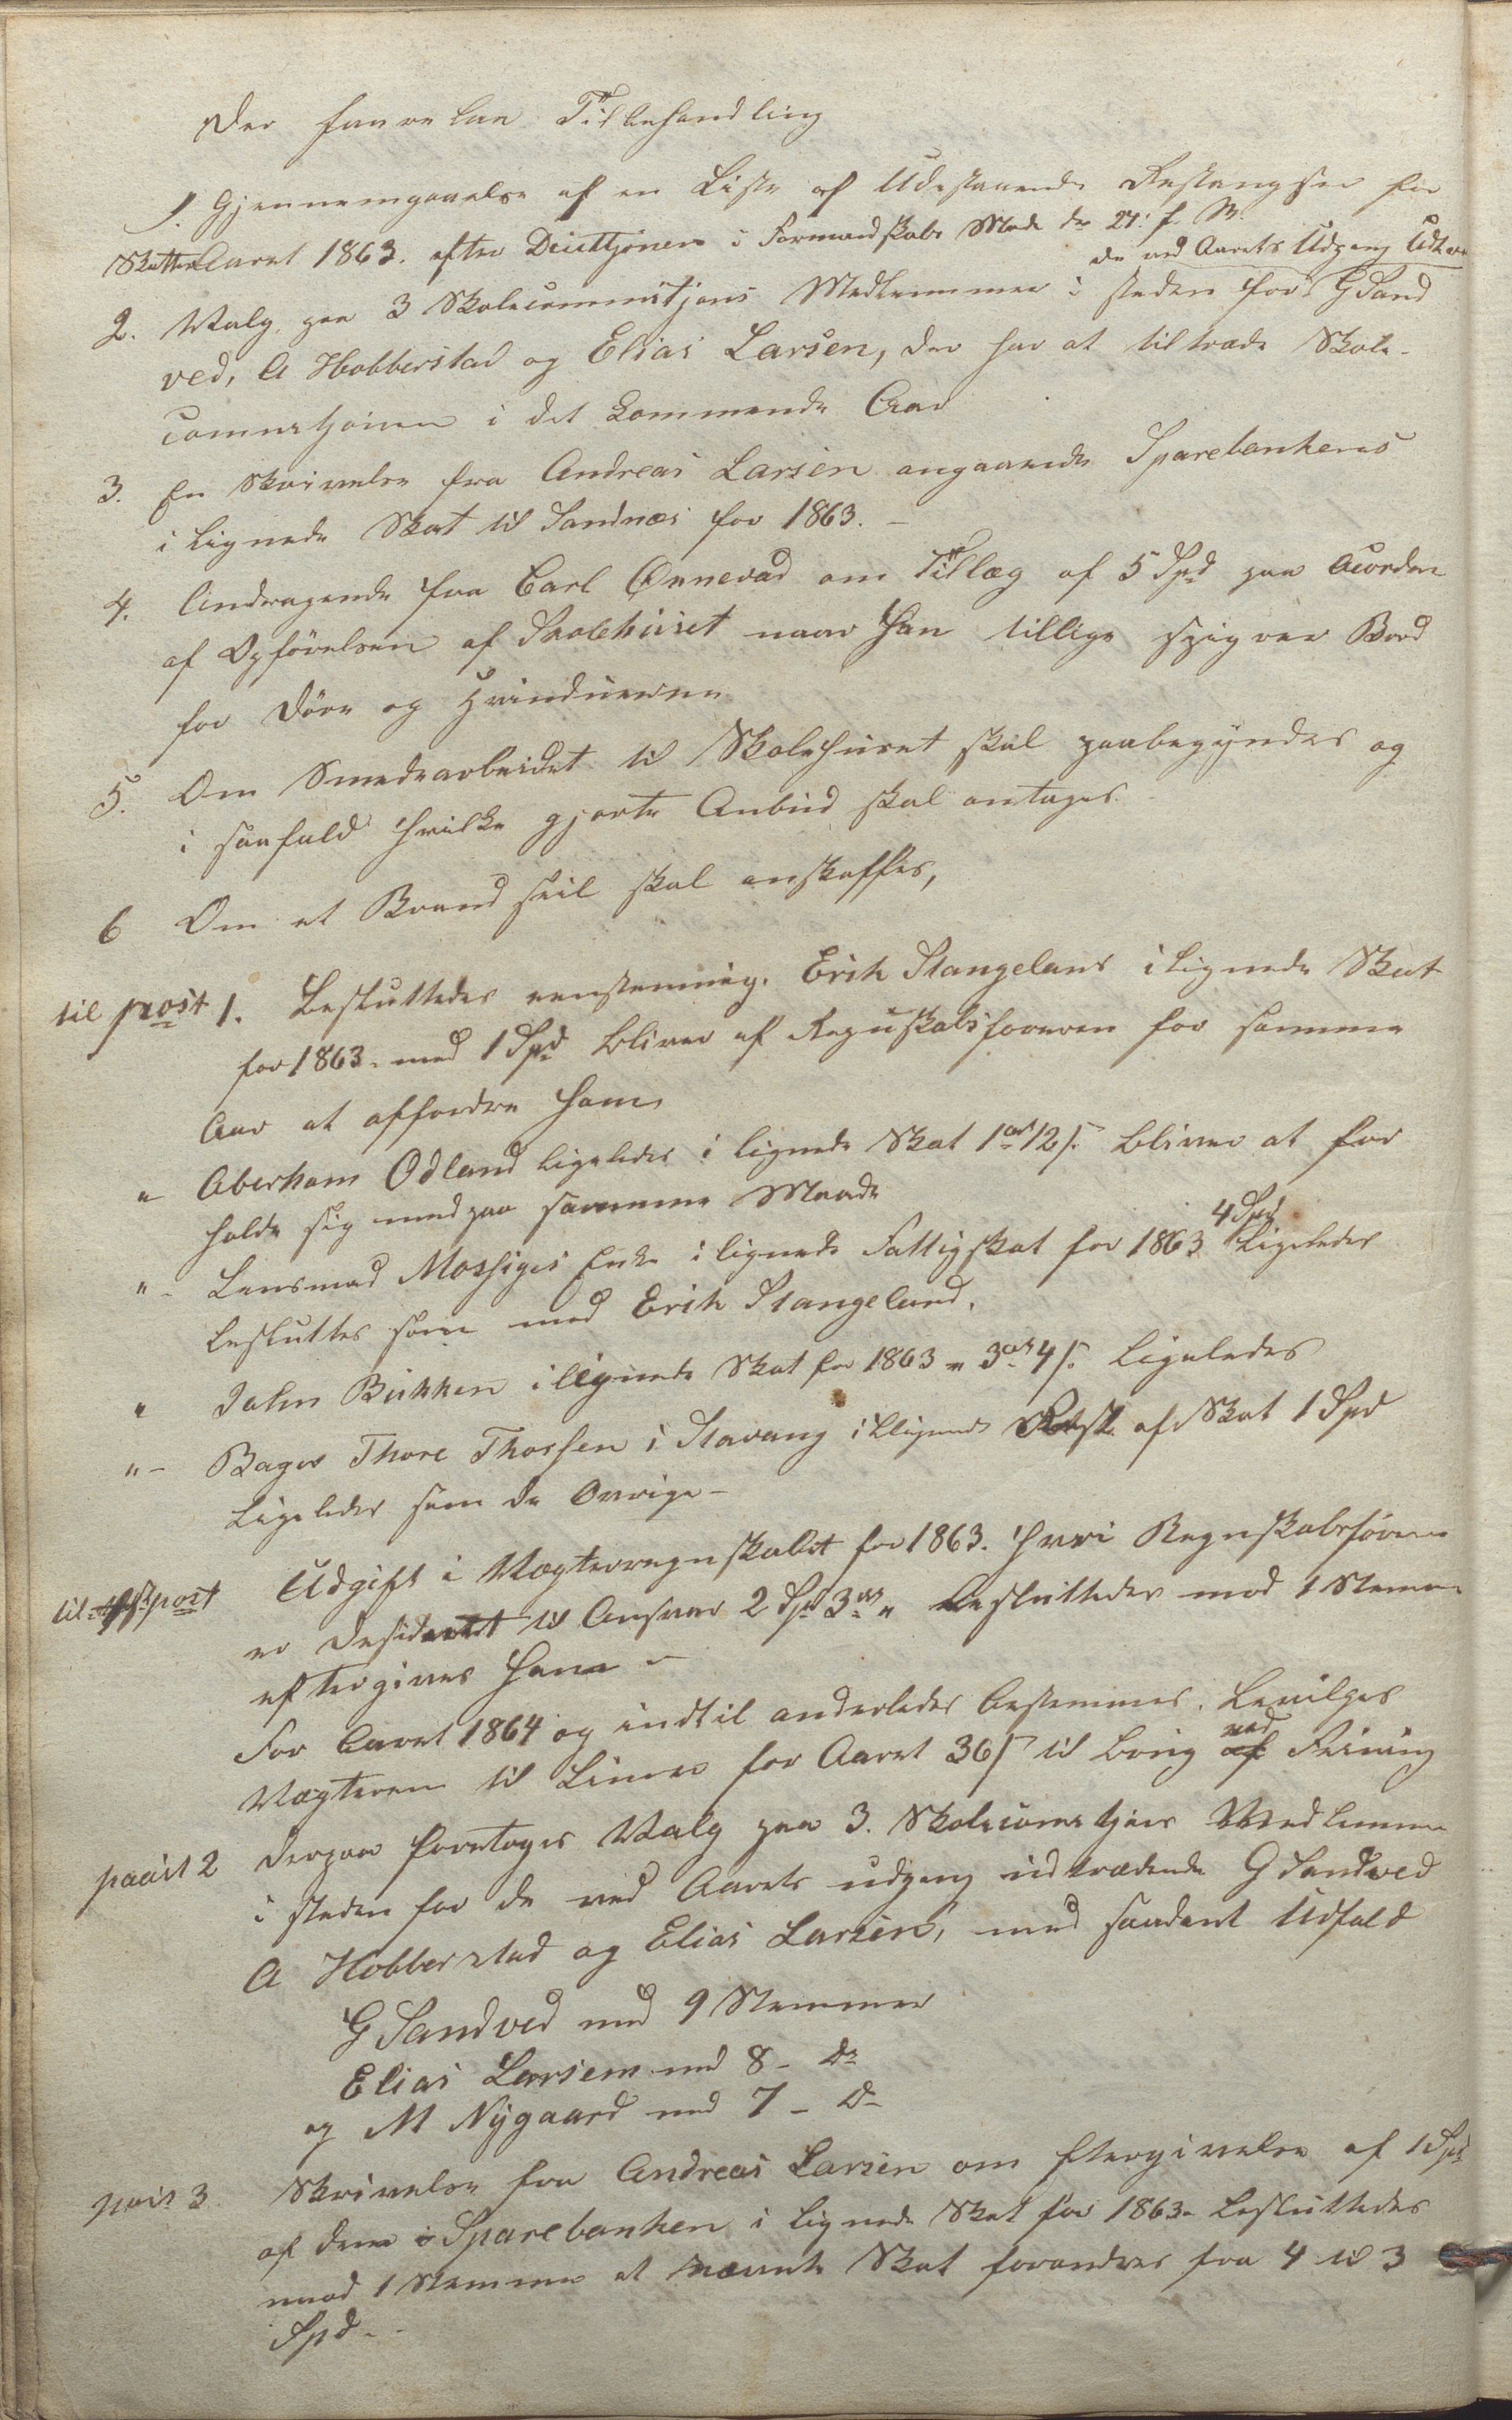 Der forelaa Til behandling
1. Gjennemgaaelse af en Liste af Udestaaende Restangser for
Skatten Aaret 1863. efter Deicttjonen i Formandskabs Møde de 27: f. M.
de ved Aarets Udgang Udtræ
2. Valg paa 3 Skolecommistjons Medlemmer i steden for G Sand
ved, A Hobberstad og Elias Larsen, der har at tiltræde Skole-
commistjonen i det kommende Aar
3. En Skrivelse fra Andreas Larsen angaaende Sparebankens
i lignede Skat til Sandnæs for 1863. —
4. Andragende fra Carl Ønnevad om Tillæg af 5 Spd paa Acorden
af Opførelsen af Skolehuset naar han tillige spigrer Bord
for Døre og Hvinduerne
5. Om Smedearbeidet til Skolehuset skal paabegyndes og
i saafald hvilke gjorte Anbud skal antages.
6 Om et Brand seil skal anskaffes,
til post 1. Besluttedes eenstemmig. Erik Stangelans i lignede Skat
for 1863. med 1 Spd bliver af Regnskabsføreren for samme
Aar at affordre ham
" Aberham Odland ligeledes i lignede Skat 1 ort 12 s. bliver at for
holde sig med paa samme Maade
4 Spd
" - Lensmad Mossiges Enke i lignede Fattigskat for 1863 Ligeledes
besluttes som med Erik Stangeland.
" John Bukken i lignede Skat for 1863 " 3 ort 4 s. Ligeledes
" - Bager Thore Thorsen i Stavang i lignede Rest af Skat 1 Spd
Ligeledes som de Øvrige -
til post Udgift i Vægterregnskabet for 1863. hvori Regnskabsføreren
er desideret til Ansvar 2 Spd 3 ort " Besluttedes mod 1 Stemme
eftergives ham -
For Aaret 1864 og indtil anderledes bestemmes. Bevilges
ved
Vægteren til Limer for Aaret 36 s til brug af Feining
paast 2 Derpaa foretoges Valg paa 3. Skolecomistjons Medlemmer
i steden for de ved Aarets udgang udtrædende G Sandved
A Hobberstad og Elias Larsen, med saadant Udfald
G Sandved med 9 Stemmer
Elias Larsen med 8 - Do
og M Nygaard med 7 - Do
post 3 Skrivelse fra Andreas Larsen om Eftergivelse af 1 Spd
af den Sparebanken i lignede Skat for 1863. besluttedes
mod 1 Stemme at nævnte Skat forandres fra 4 til 3
Spd -